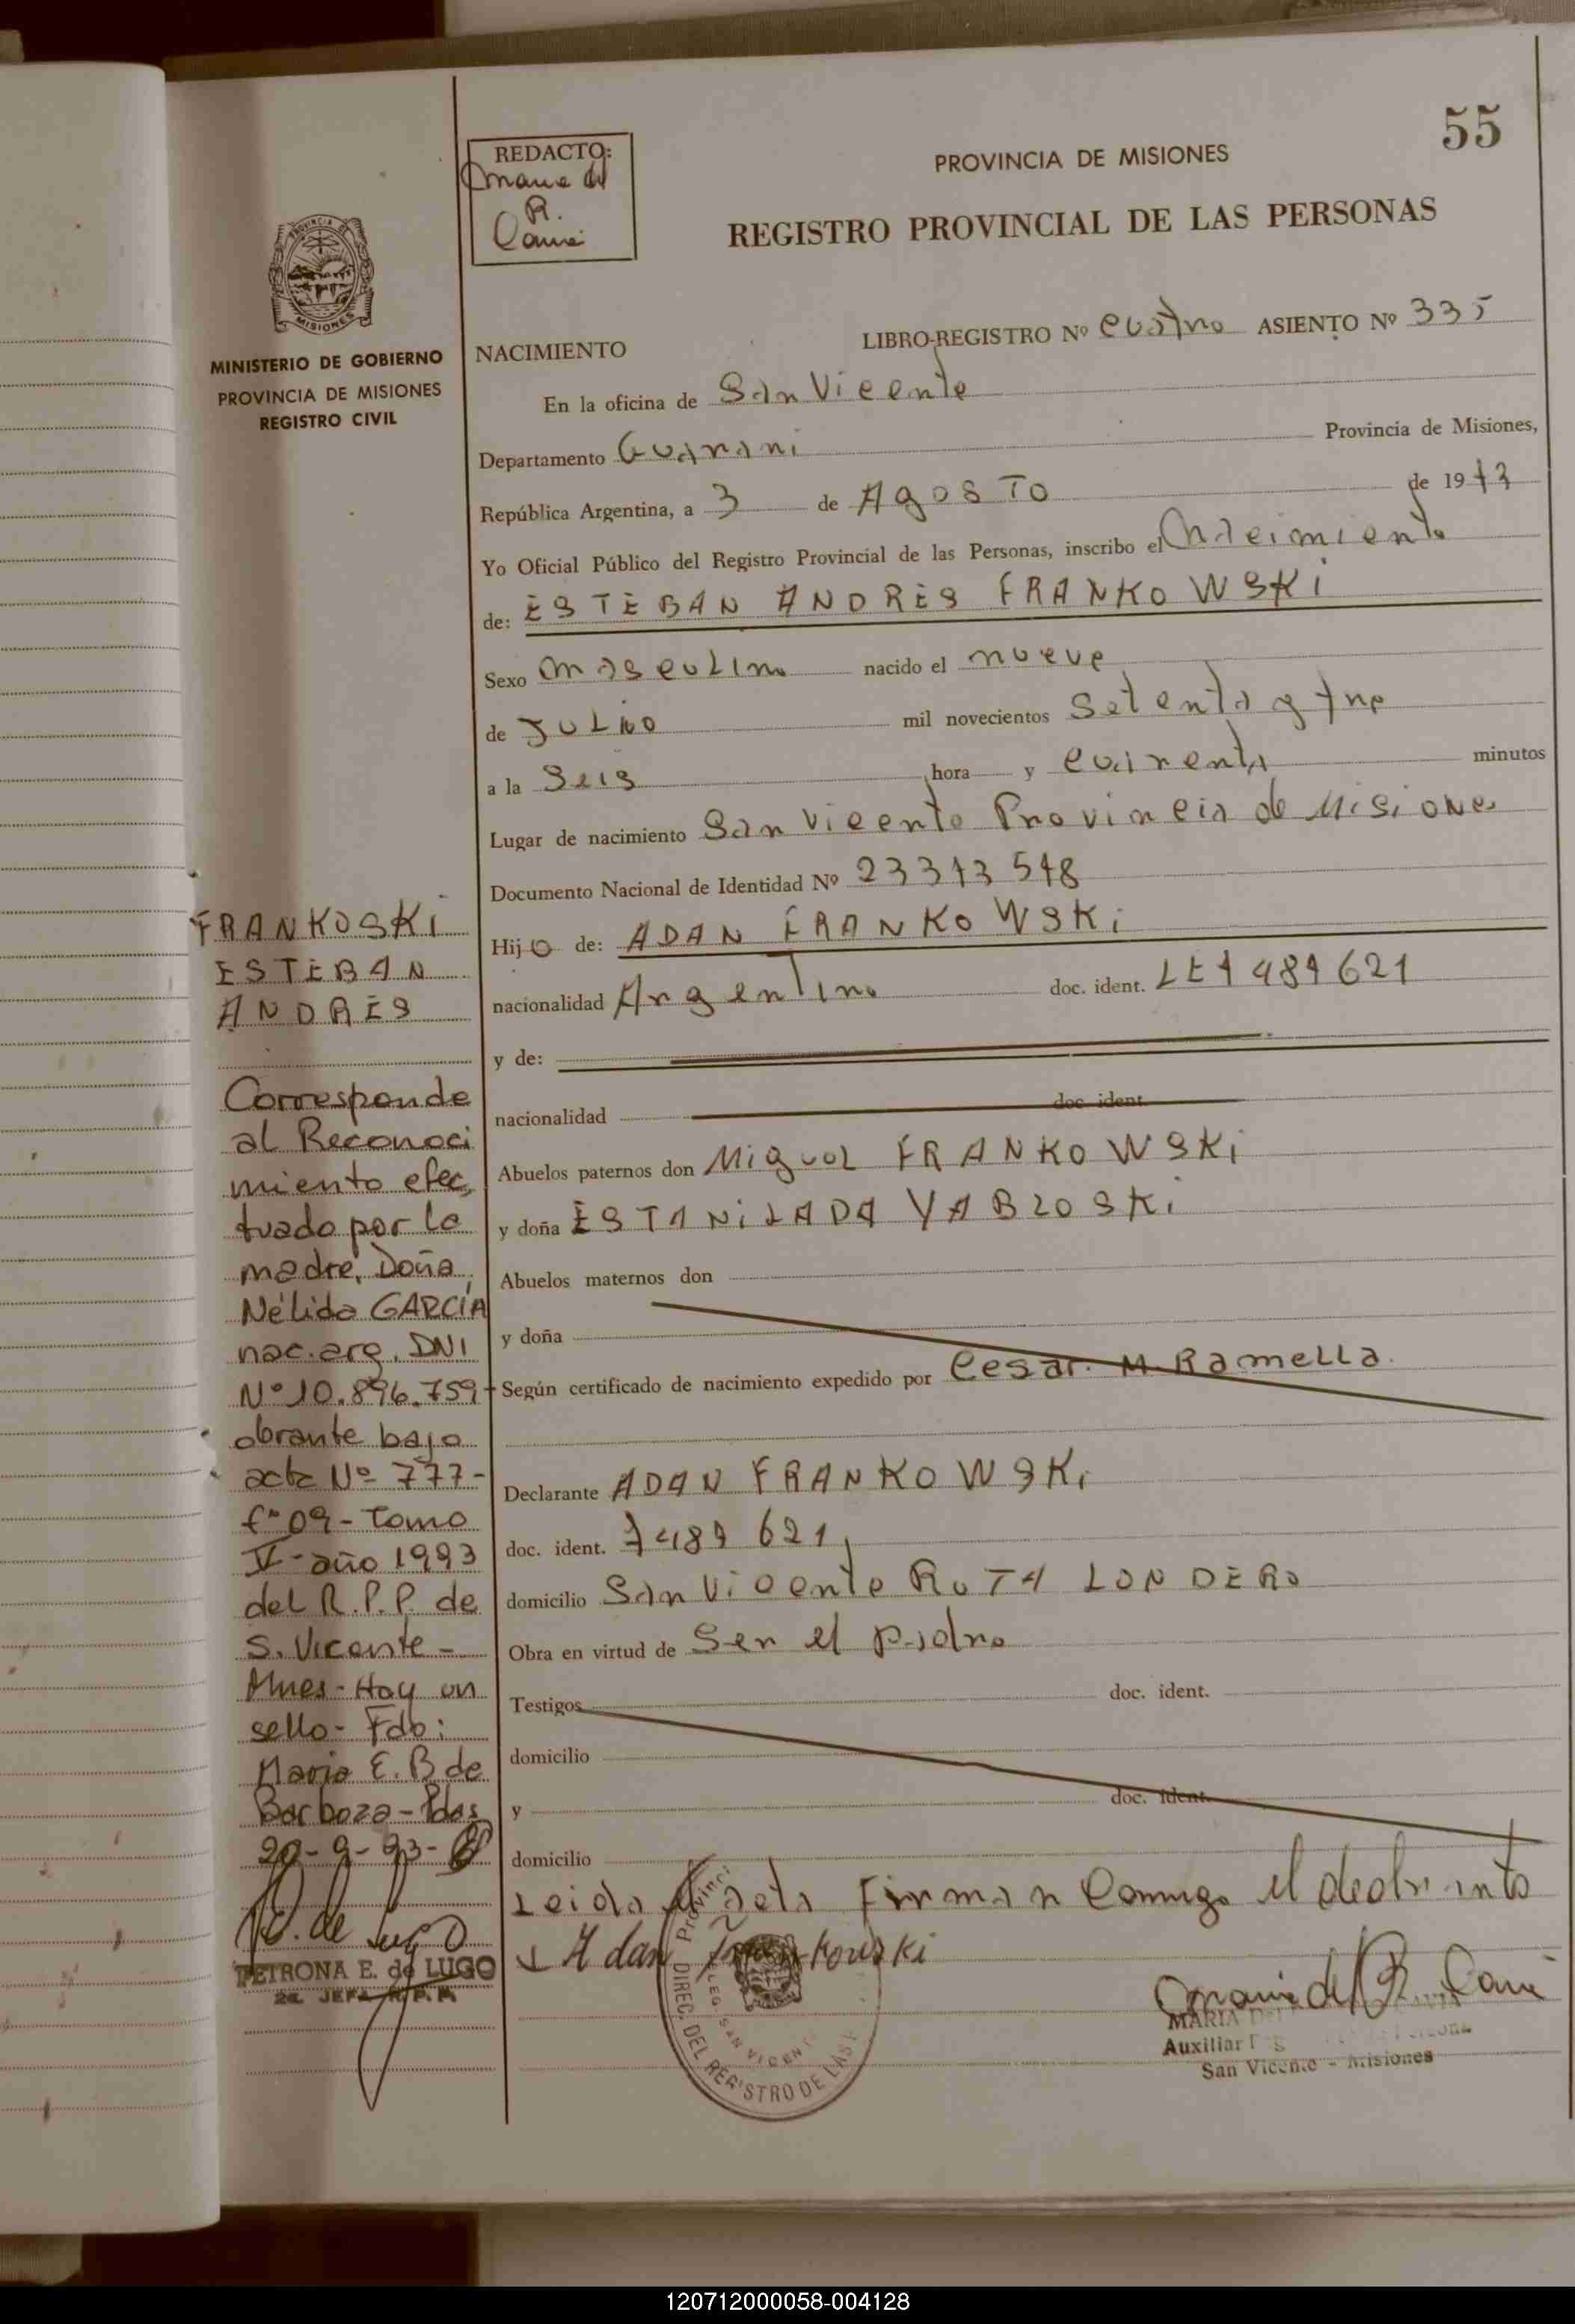 55
REDACTO:
Maria del
R.
PROVINCIA DE MISIONES
REGISTRO PROVINCIAL DE LAS PERSONAS
PROVINCIA DE
MISIONES
MINISTERIO DE GOBIERNO
PROVINCIA DE MISIONES
REGISTRO CIVIL
NACIMIENTO
LIBRO-REGISTRO Nº cuatro ASIENTO Nº 335
En la oficina de San Vicente
Departamento Guarani Provincia de Misiones,
República Argentina, a 3 de AgOSTO de 1973
Yo Oficial Público del Registro Provincial de las Personas, inscribo el Nacimiento
de: ESTEBAN ANDRES FRANKOWSKi
Sexo masculino nacido el nueve
de JULIO mil novecientos setenta y tres
a la Seis hora y cuarenta minutos
Lugar de nacimiento San Vicente Provincia de Misiones
Documento Nacional de Identidad Nº 23373578
Hijo de: ADAN FRANKOWSKi
nacionalidad Argentino doc. ident. LE 7487621
y de:
nacionalidad doc. ident.
Abuelos paternos don Miguel FRANKOWSKi
y doña ESTANiLADA YABLOSKi
Abuelos maternos don
y doña
Según certificado de nacimiento expedido por Cesar. M. Ramella.
Declarante ADAN FRANKOWSKi
doc. ident. 7487621
domicilio San Vicente RUTA LONDERO
Obra en virtud de Ser el padre
Testigos doc. ident.
domicilio
y doc. ident.
domicilio
Leida el acta Firman Conmigo el declarante
Adan Frankowski
FRANKOSKi
ESTEBAN
ANDRES
Corresponde
al Reconoci
miento efec,
tuado por la
madre, Doña
Nélida GARCÍA
nac. arg. DNI
Nº 10.896.759-
obrante bajo
acta Nº 777-
fº 09 - Tomo
V - año 1993
del R.P.P. de
S. Vicente -
Mnes - Hay un
sello - Fdo:
Maria E. B de
Barboza - Pdas
20-9-93-
P. de Lugo
PETRONA E. de LUGO
2a. JEFA R.P.P.
DIREC. DEL REGISTRO DE LAS P
Provinci
DELEG. SAN VICENTE
Maria del R.
MARIA DEL
Auxiliar
San Vicente - Misiones
120712000058-004128